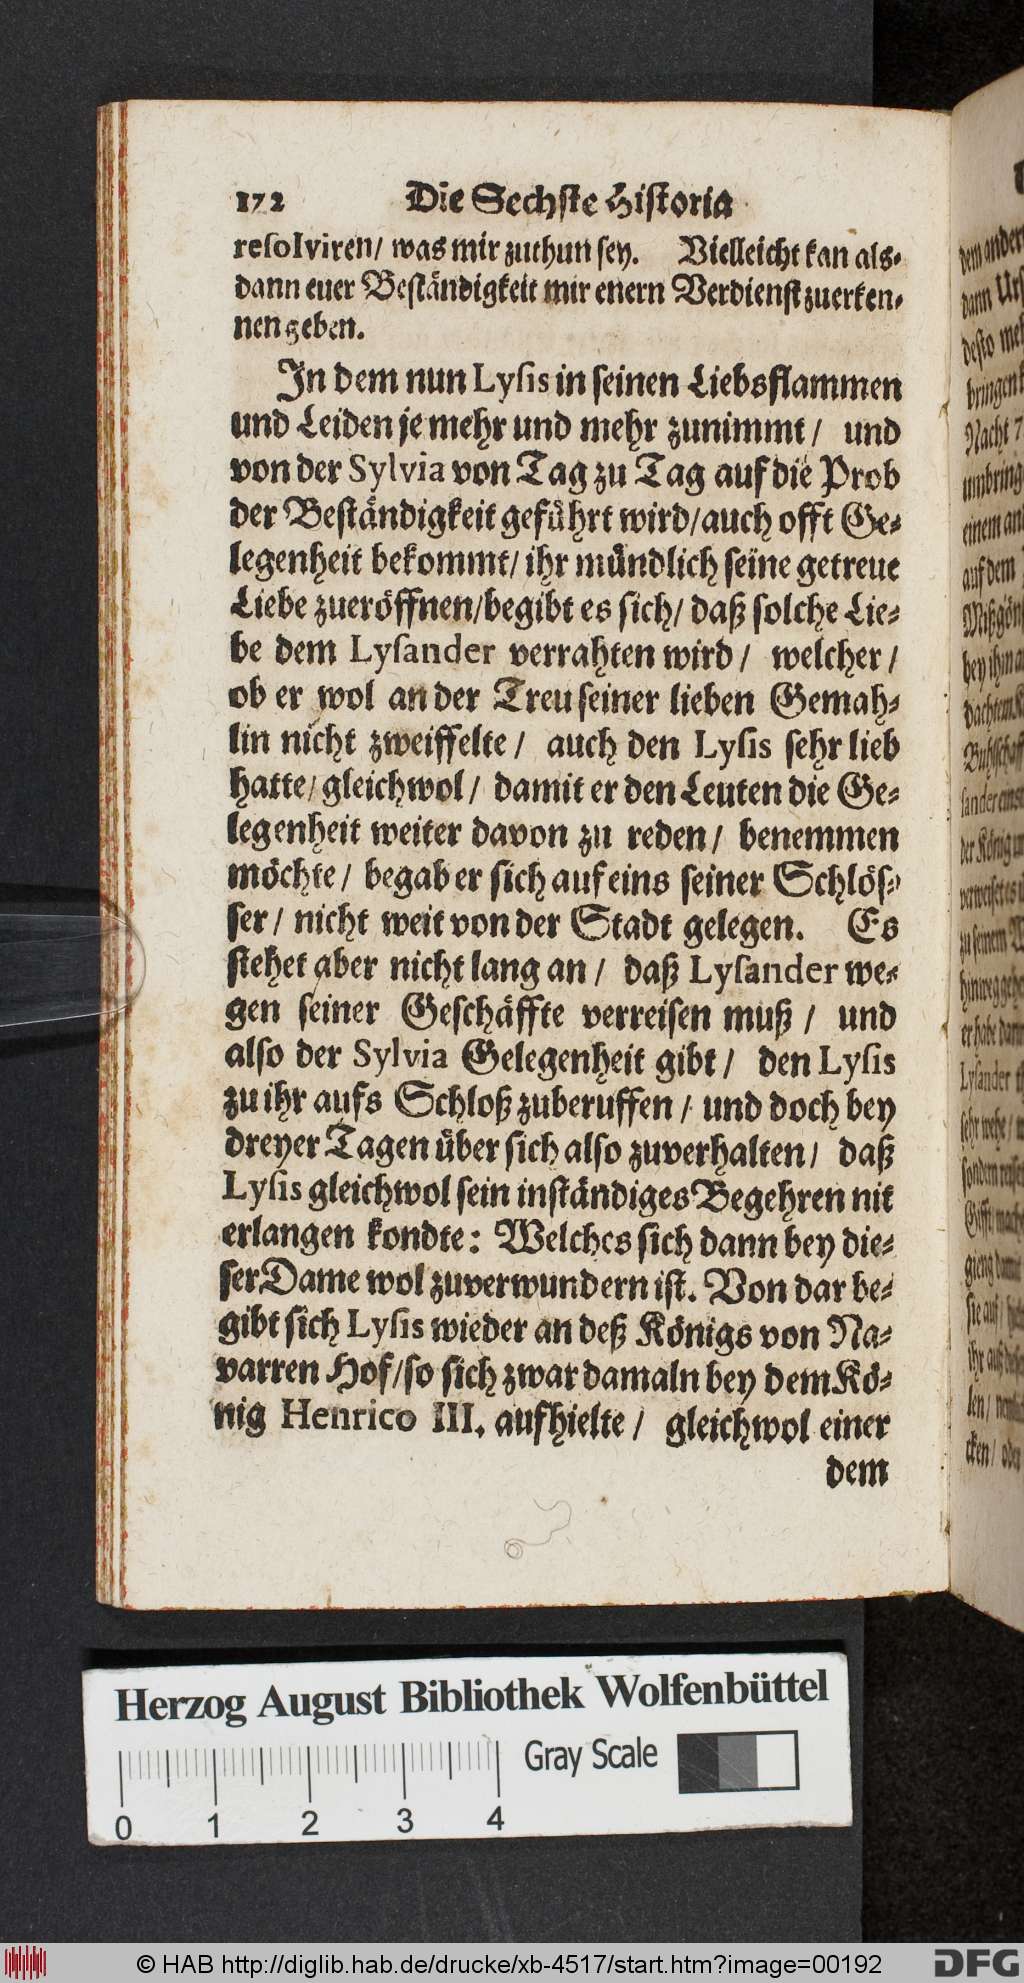 172 Die Sechste Historia
resolviren/ was mir zuthun sey. Vielleicht kan als-
dann euer Beständigkeit mir enern Verdienst zuerken-
nen geben.
In dem nun Lysis in seinen Liebsflammen
und Leiden je mehr und mehr zunimmt/ und
von der Sylvia von Tag zu Tag auf die Prob
der Beständigkeit geführt wird/auch offt Ge-
legenheit bekommt/ ihr mündlich seine getreue
Liebe zueröffnen/begibt es sich/ daß solche Lie-
be dem Lysander verrahten wird/ welcher/
ob er wol an der Treu seiner lieben Gemah-
lin nicht zweiffelte/ auch den Lysis sehr lieb
hatte/ gleichwol/ damit er den Leuten die Ge-
legenheit weiter davon zu reden/ benemmen
möchte/ begab er sich auf eins seiner Schlös-
ser/ nicht weit von der Stadt gelegen. Es
stehet aber nicht lang an/ daß Lysander we-
gen seiner Geschäffte verreisen muß/ und
also der Sylvia Gelegenheit gibt/ den Lysis
zu ihr aufs Schloß zuberuffen/ und doch bey
dreyer Tagen über sich also zuverhalten/ daß
Lysis gleichwol sein inständiges Begehren nit
erlangen kondte: Welches sich dann bey die-
ser Dame wol zuverwundern ist. Von dar be-
gibt sich Lysis wieder an deß Königs von Na-
varren Hof/so sich zwar damaln bey dem Kö-
nig Henrico III. aufhielte/ gleichwol einer
dem
dem andern
dann
desto
bringen
Nacht
umbring
einem
auf dem
bey ihm
der König
zu seinem
er habe
Lysander
sehr wehe/
Gifft
gieng
sie auf/
len/
cken/ oder
Herzog August Bibliothek Wolfenbüttel
Gray Scale
0 1 2 3 4
© HAB http://diglib.hab.de/drucke/xb-4517/start.htm?image=00192
DFG